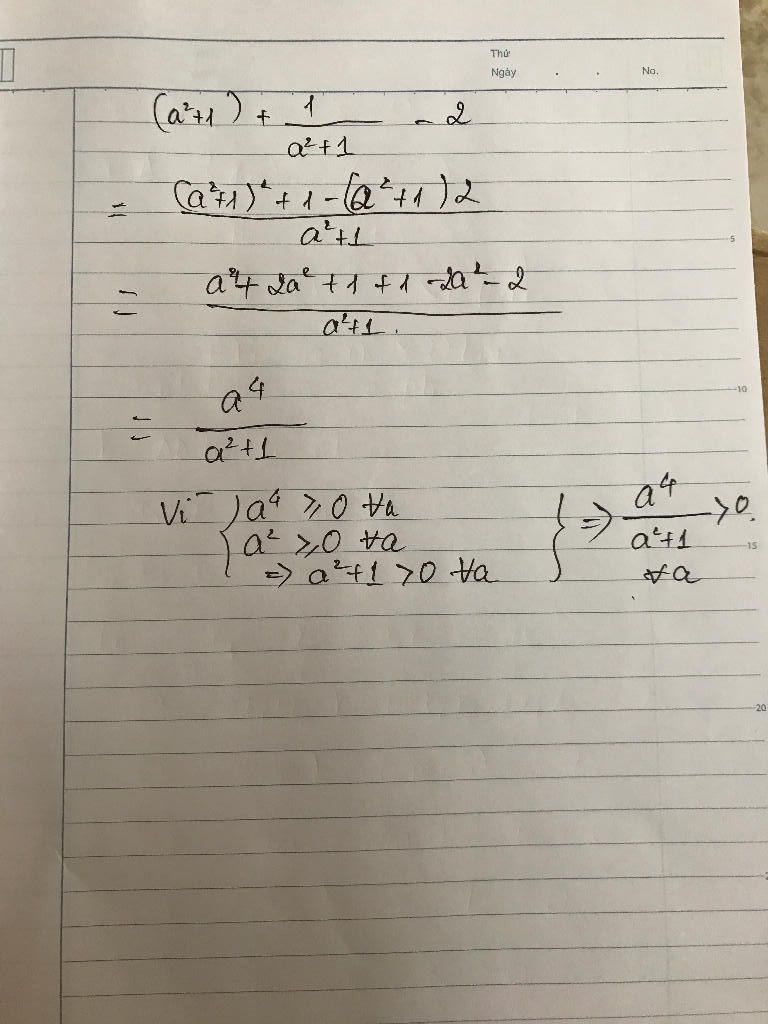 Thứ
Ngày . . No.
(a²+1) + 1/(a²+1) - 2
= ((a²+1)² + 1 - (a²+1)2)/(a²+1)
5
= (a⁴ + 2a² + 1 + 1 - 2a² - 2)/(a²+1).
= a⁴/(a²+1)
10
Vì { a⁴ ≥ 0 ∀a } => a⁴/(a²+1) > 0.
a² ≥ 0 ∀a
15
=> a²+1 > 0 ∀a
∀a
20